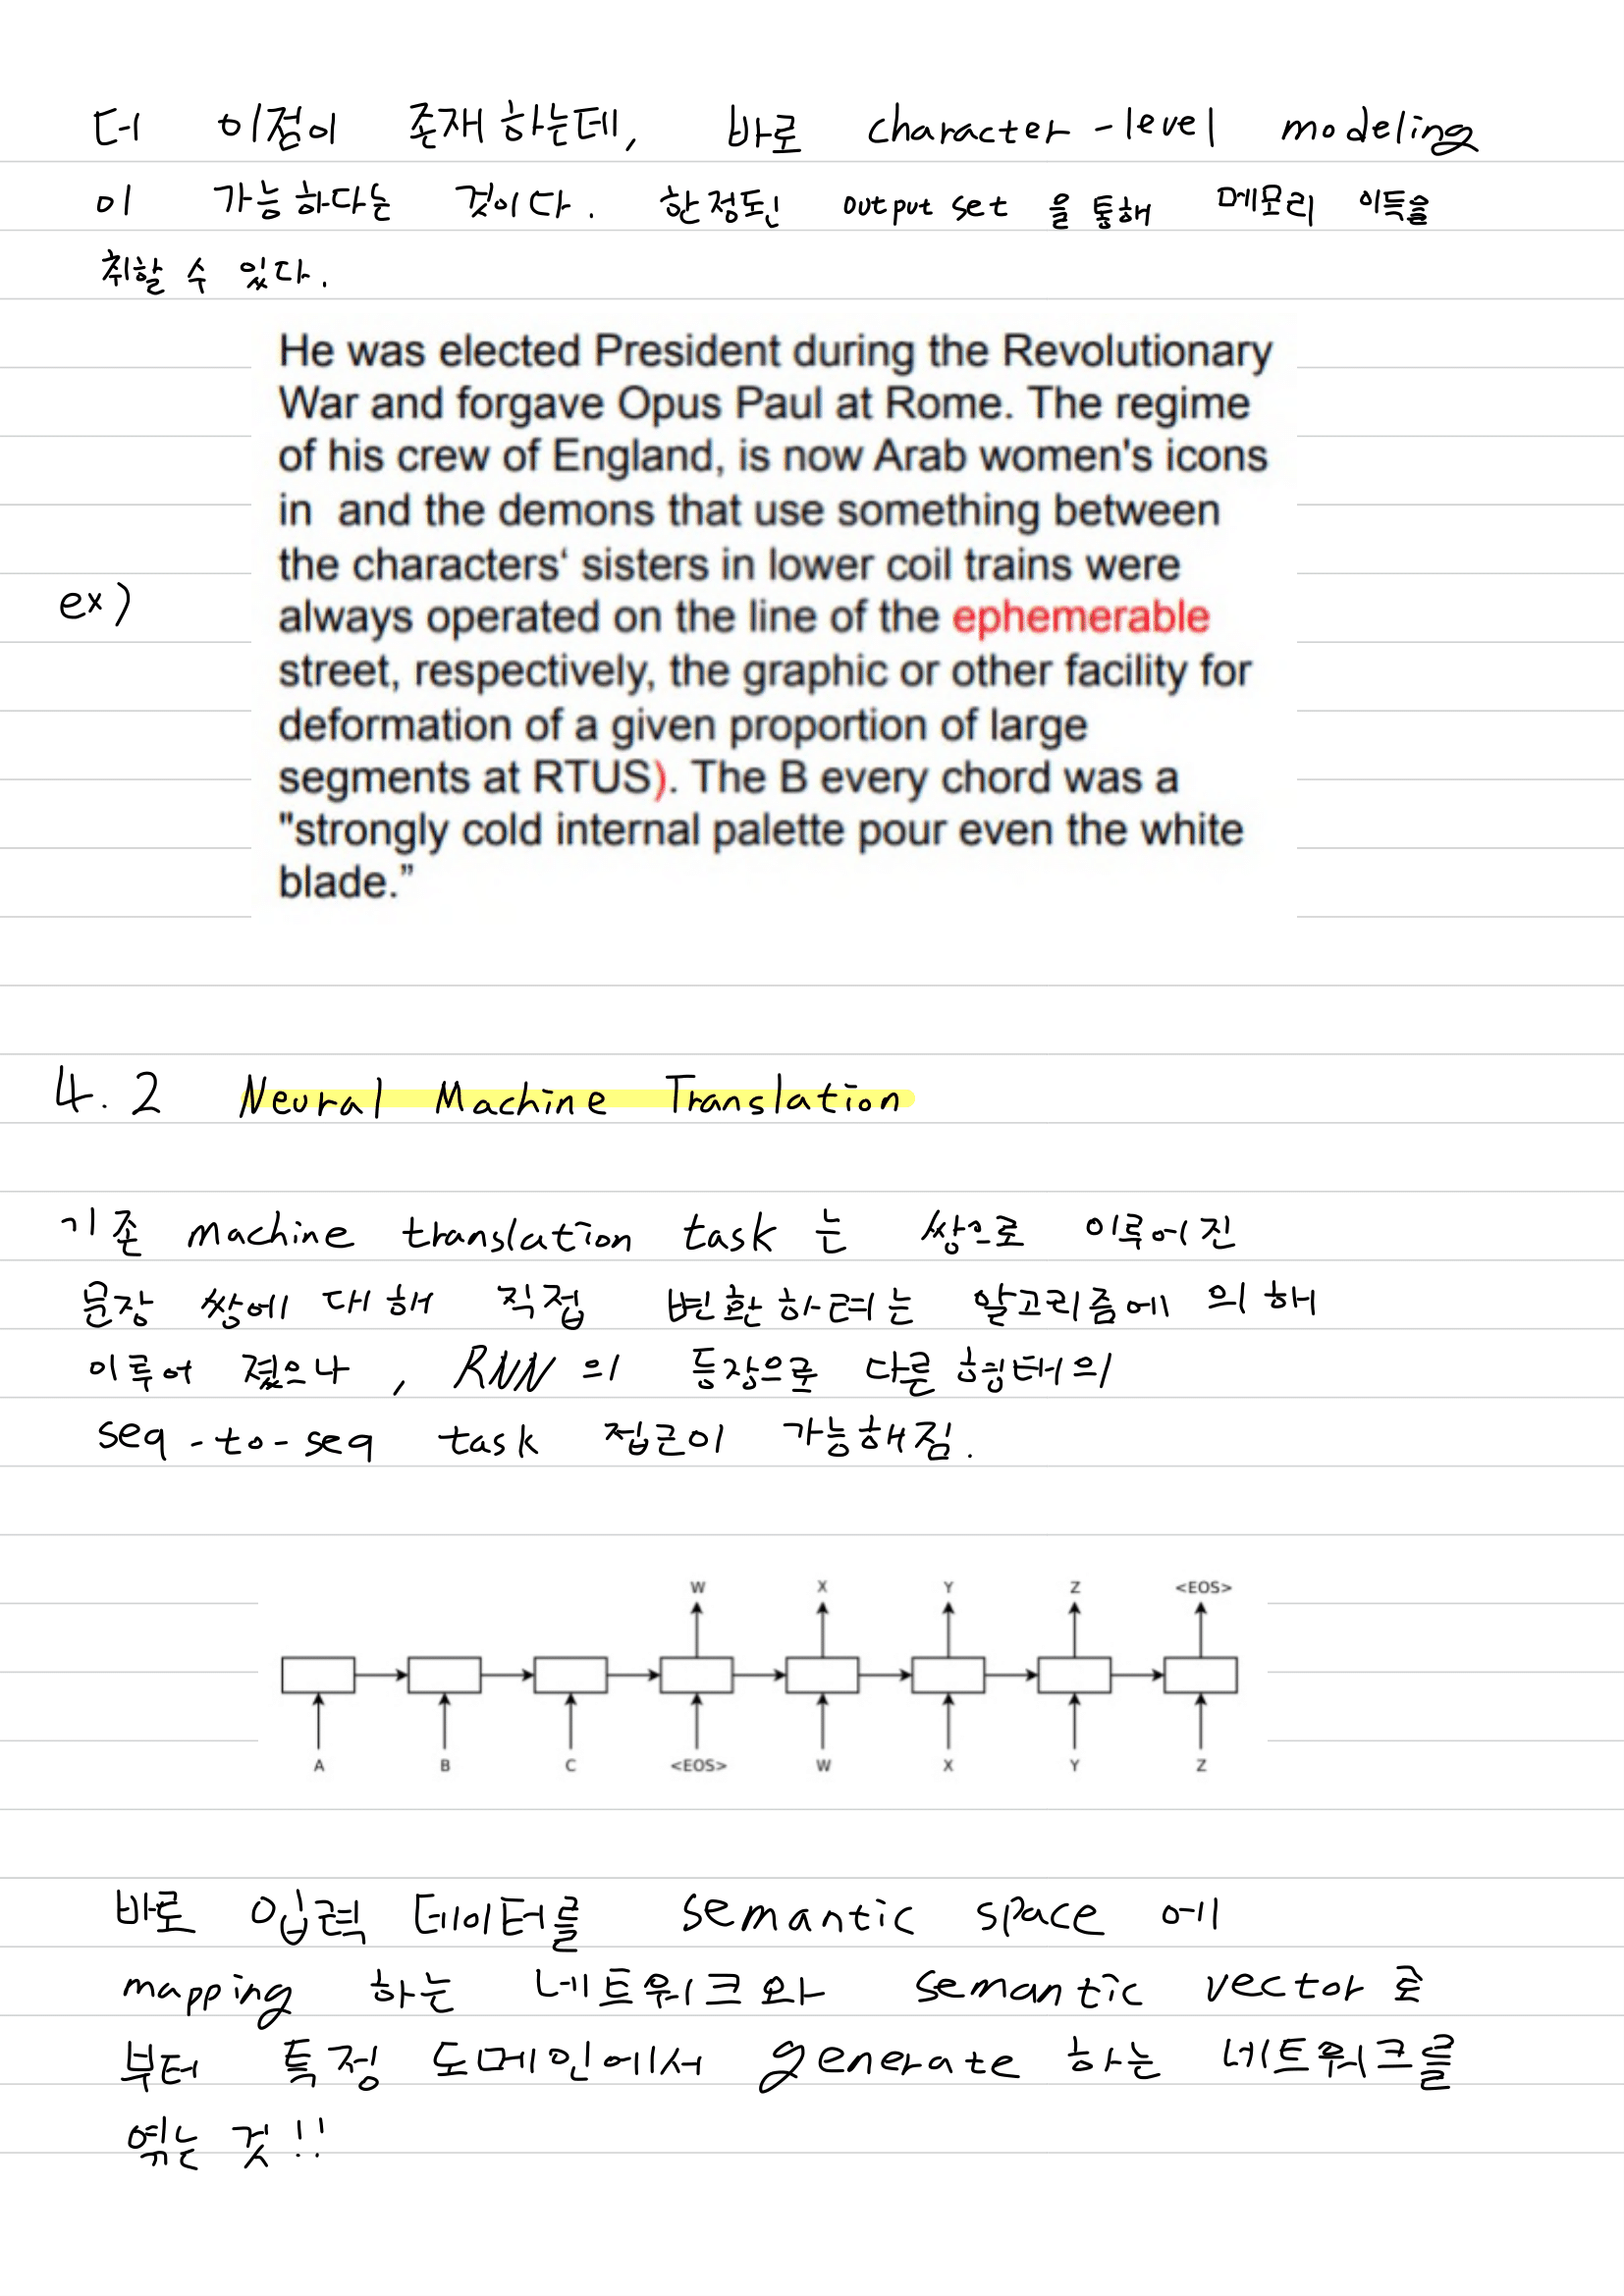 더 이점이 존재하는데, 바로 character-level modeling
이 가능하다는 것이다. 한정된 output set 을 통해 메모리 이득을
취할 수 있다.
He was elected President during the Revolutionary
War and forgave Opus Paul at Rome. The regime
of his crew of England, is now Arab women's icons
in  and the demons that use something between
the characters‘ sisters in lower coil trains were
ex)
always operated on the line of the ephemerable
street, respectively, the graphic or other facility for
deformation of a given proportion of large
segments at RTUS). The B every chord was a
"strongly cold internal palette pour even the white
blade.”
4.2 Neural Machine Translation
기존 machine translation task 는 쌍으로 이루어진
문장 쌍에 대해 직접 변환하려는 알고리즘에 의해
이루어 졌으나, RNN 의 등장으로 다른 형태의
seq-to-seq task 접근이 가능해짐.
W X Y Z <EOS>
A B C <EOS> W X Y Z
바로 입력 데이터를 semantic space 에
mapping 하는 네트워크와 semantic vector 로
부터 특정 도메인에서 generate 하는 네트워크를
엮는 것!!